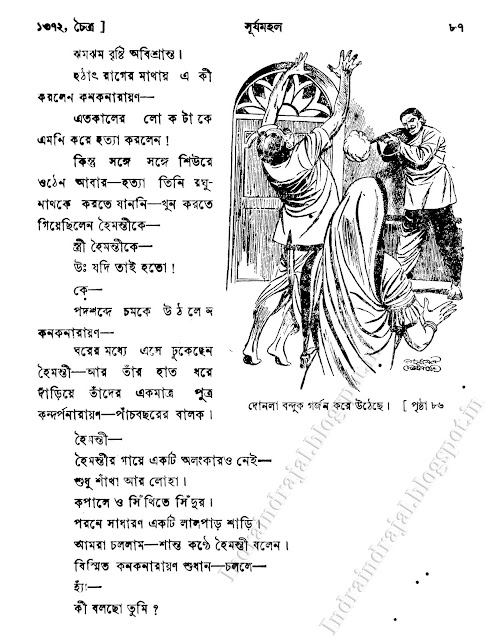 ১৩৭২, চৈত্র ]
সূর্যমহল
৮৭
ঝমঝম বৃষ্টি অবিশ্রান্ত।
হঠাৎ রাগের মাথায় এ কী
করলেন কনকনারায়ণ—
এতকালের লোকটাকে
এমনি করে হত্যা করলেন !
কিন্তু সঙ্গে সঙ্গে শিউরে
ওঠেন আবার—হত্যা তিনি রঘু-
নাথকে করতে যাননি—খুন করতে
গিয়েছিলেন হৈমন্তীকে—
স্ত্রী হৈমন্তীকে—
উঃ যদি তাই হতো !
কে—
পদশব্দে চমকে উঠলেন
কনকনারায়ণ—
ঘরের মধ্যে এসে ঢুকেছেন
হৈমন্তী—আর তাঁর হাত ধরে
দাঁড়িয়ে তাঁদের একমাত্র পুত্র
কন্দর্পনারায়ণ—পাঁচবছরের বালক।
দোনলা বন্দুক গর্জন করে উঠেছে। [ পৃষ্ঠা ৮৬
হৈমন্তী—
হৈমন্তীর গায়ে একটি অলংকারও নেই—
শুধু শাঁখা আর লোহা।
কপালে ও সিঁথিতে সিঁদুর।
পরনে সাধারণ একটি লালপাড় শাড়ি।
আমরা চললাম—শান্ত কণ্ঠে হৈমন্তী বলেন।
বিস্মিত কনকনারায়ণ শুধান—চললে—
হ্যাঁ—
কী বলছো তুমি ?
Indraindrajal.blogspot.in
Indraindrajal.blogspot.in